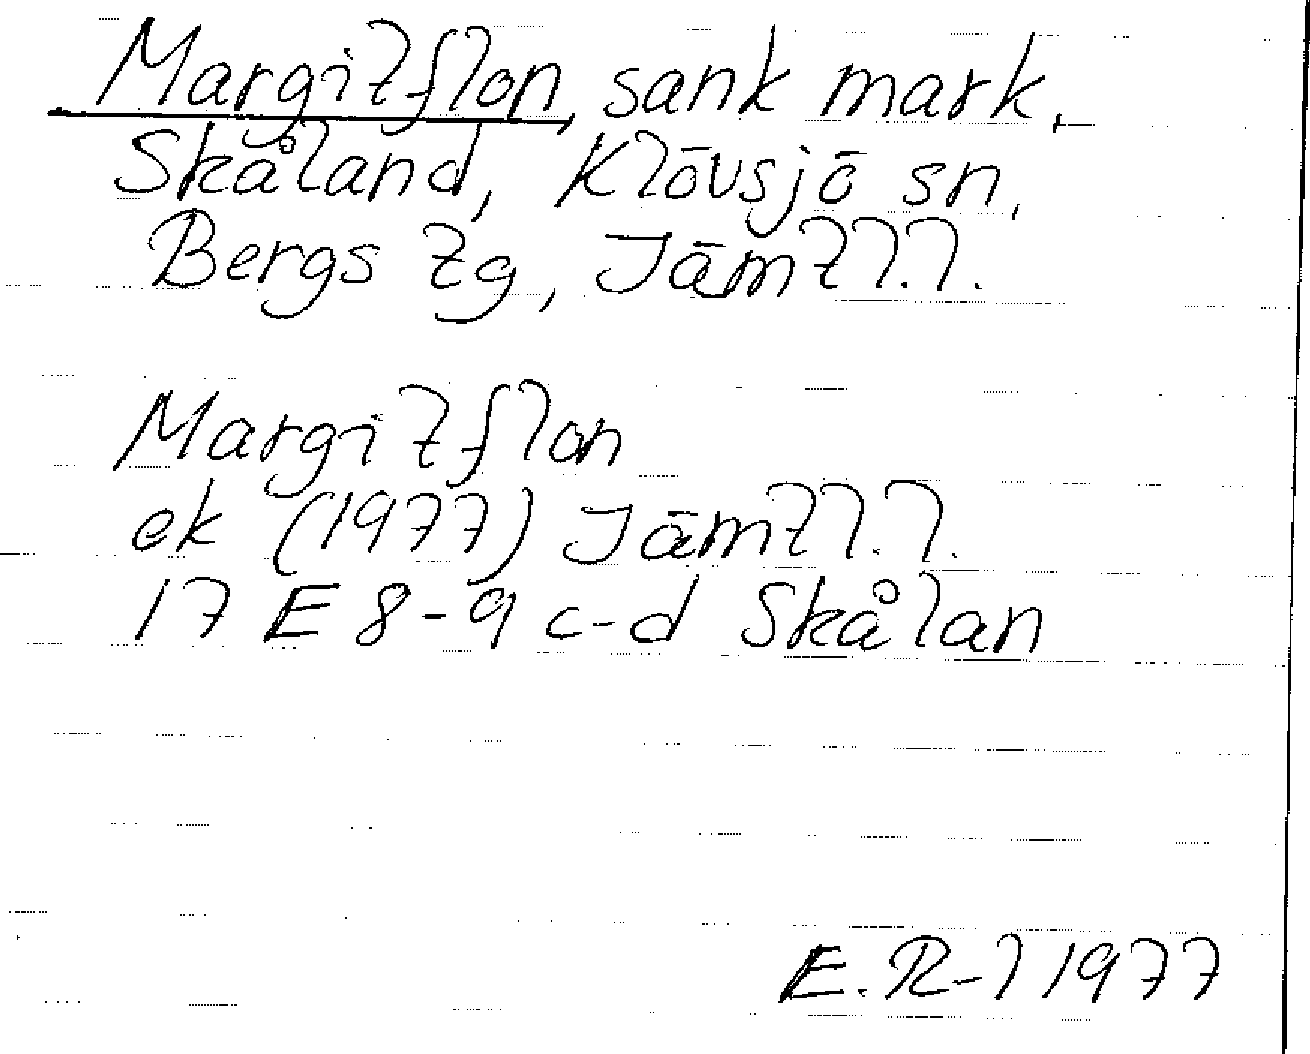 Margitflon, sank mark,
Skåland, Klövsjö sn,
Bergs tg, Jämtl.l.
Margitflon
ek (1977) Jämtl.l.
17 E 8-9 c-d Skålan
E.R-l 1977